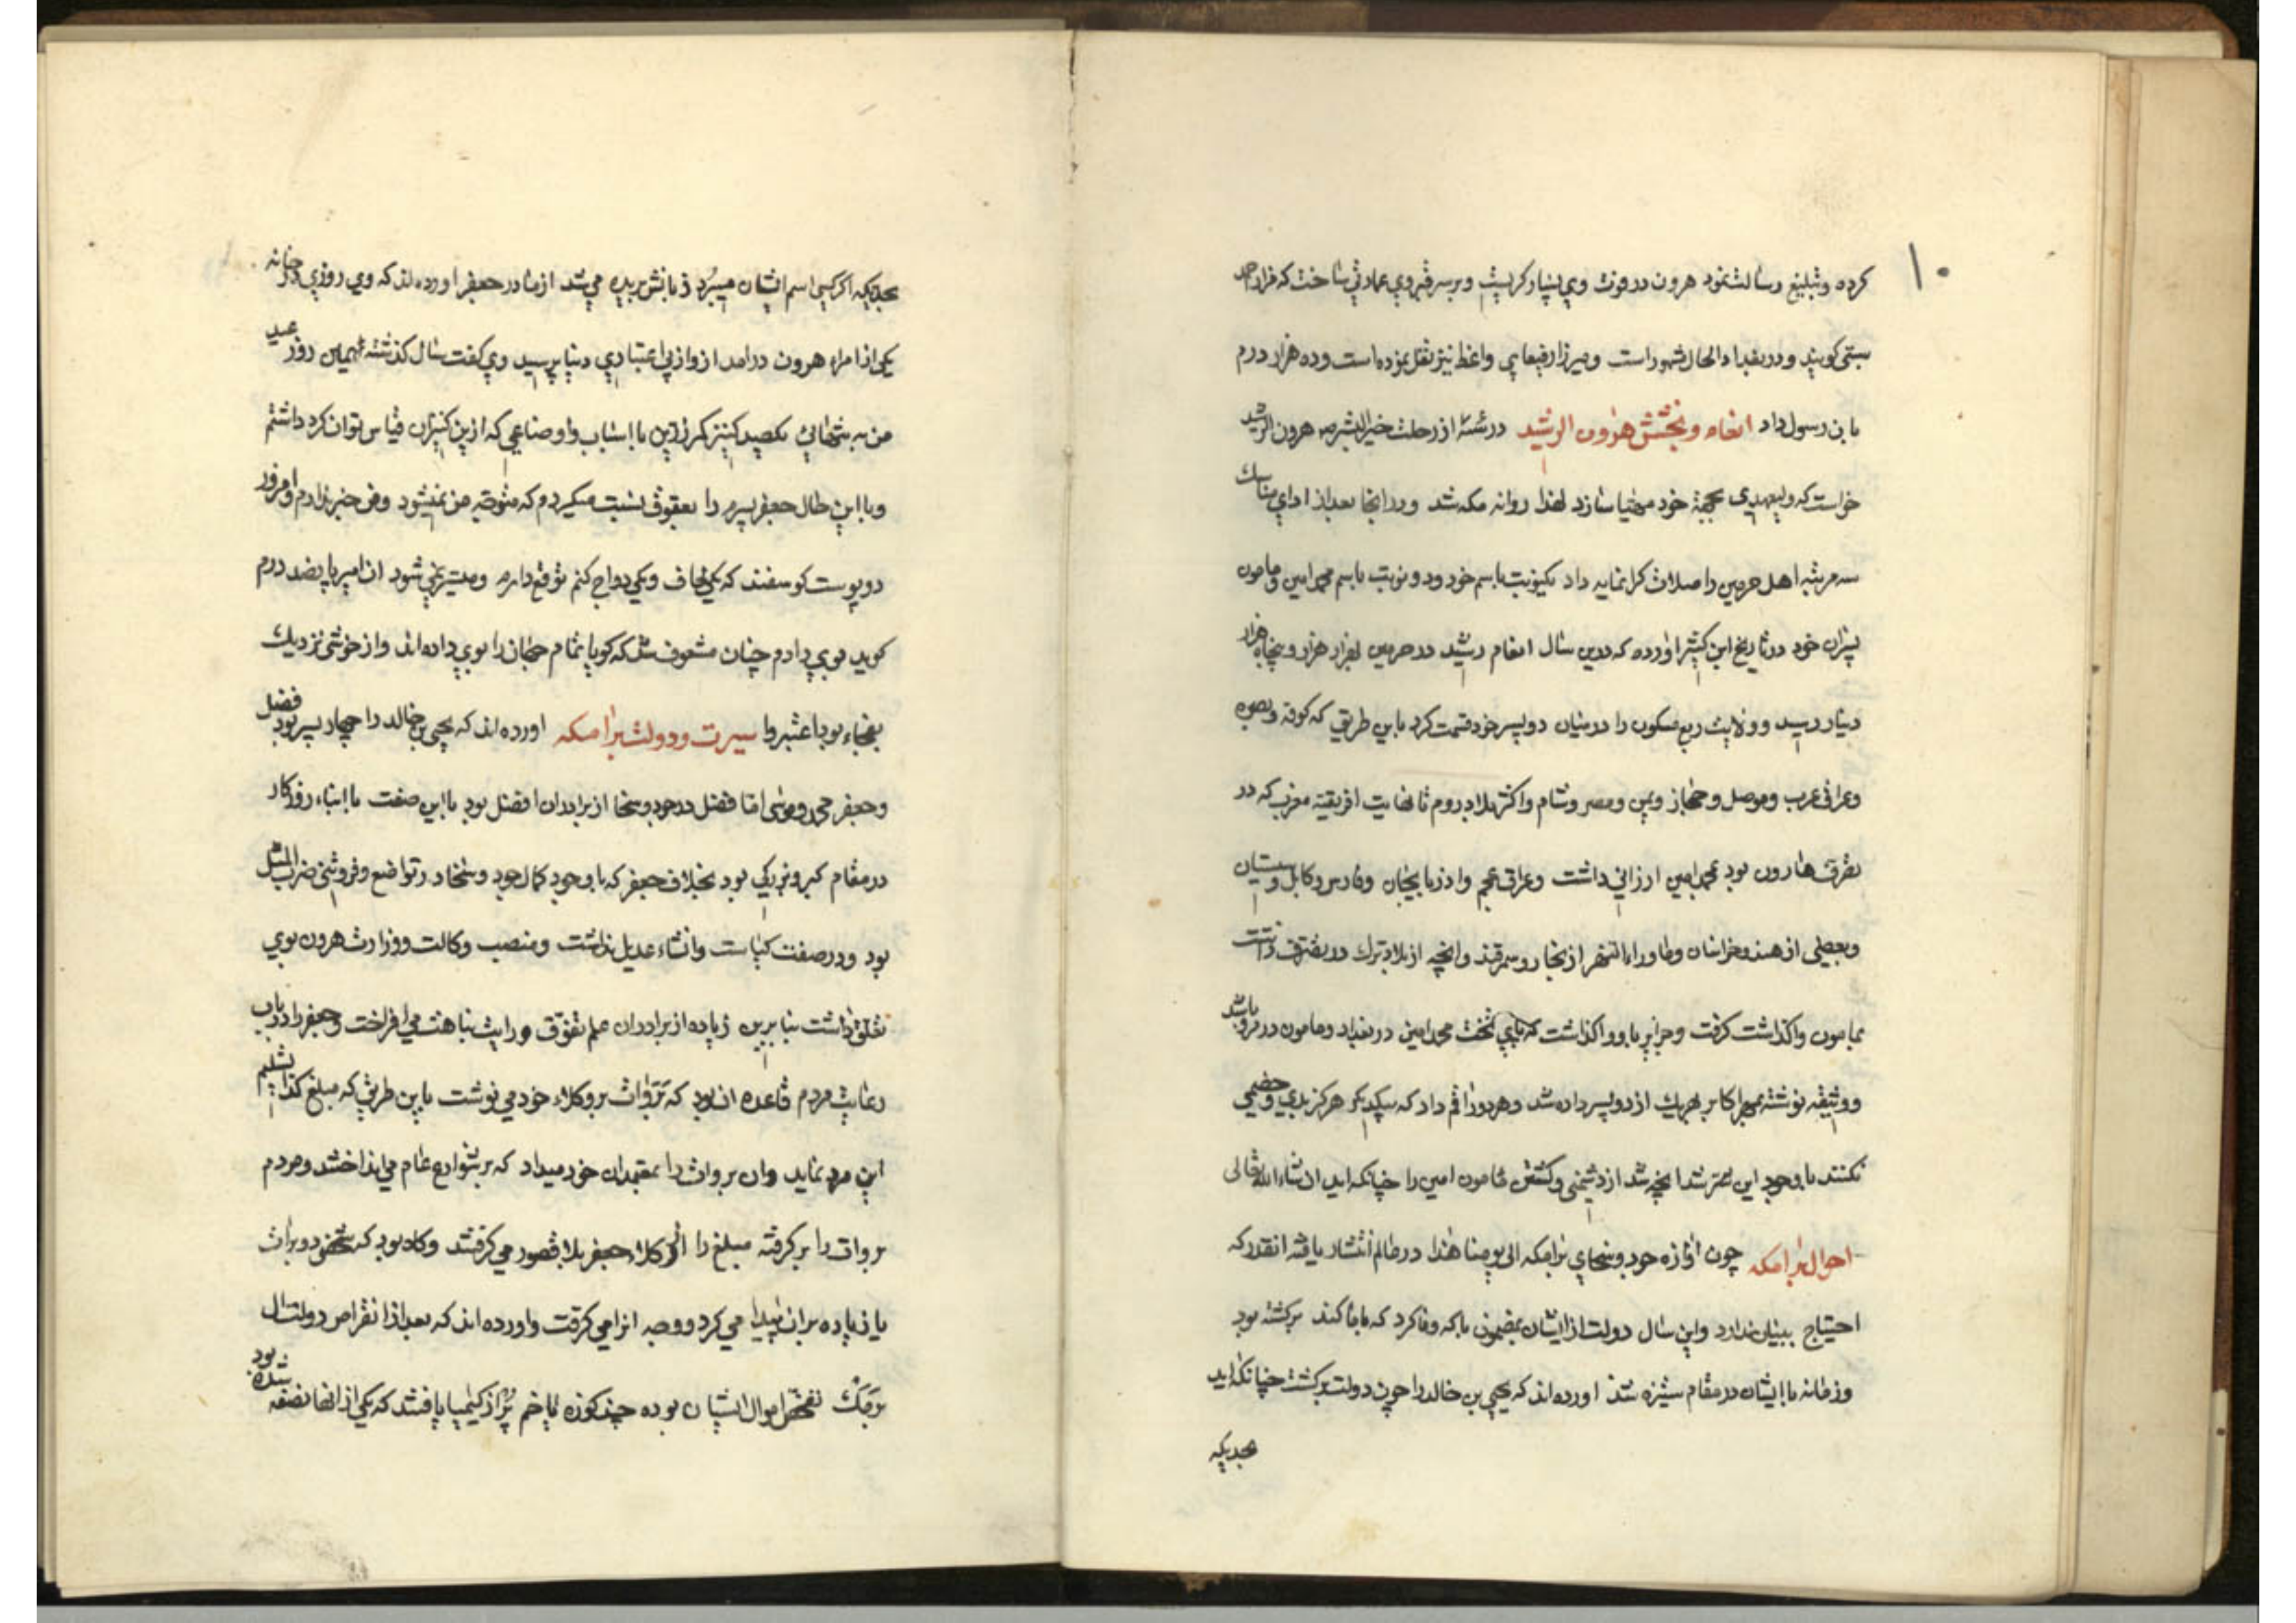 ۱۰
کرده وتبلیغ رسالت نمود هرون در فوت وی بسیار کریست وبر سر قبر وی عمارتی ساخت که مزار احمد
ستی کویند ودر بغداد الحال مشهور است ومیرزا رفیعای واعظ نیز نقل نموده است وده هزار درم
باین رسول داد انعام وبخشش هرون الرشید در از رحلت خیر البشر هرون الرشید
خواست که ولیعهدی بجهة خود مهیا سازد لهذا روانه مکه شد ودر انجا بعد از ادای مناسك
سه مرتبه اهل حرمین را صلات کرانمایه داد یکنوبت باسم خود ودو نوبت باسم محمد امین ومامون
پسران خود در تاریخ ابن کثیر اورده که درین سال انعام رشید در حرمین بهزار هزار وپنجاه هزار
دینار رسید وولایت ربع مسکون را در میان دو پسر خود قسمت کرد باین طریق که کوفه وبصره
وعراق عرب وموصل وحجاز ویمن ومصر وشام واکثر بلاد روم تا نهایت افریقیه مغرب که در
تصرف هارون بود بمحمد امین ارزانی داشت وعراق عجم واذربایجان وفارس وکابل وسیستان
وبعضی از هند وخراسان وماوراءالنهر از بخارا وسمرقند وانچه از بلاد ترك در تصرف داشت
بمامون واکذاشت کرفت وجزایر باو واکذاشت که پای تخت محمد امین در بغداد ومامون در مرو باشد
ووثیقه نوشته بمهر اکابر بهریك از دو پسر داده شد وهر دو را قسم داد که بیکدیکر هرکز بدی وخصمی
نکنند باوجود این شد انچه شد از دشمنی وکشتن مامون امین را چنانکه اید ان شاء الله تعالی
احوال برامکه چون اوازه جود وسخای برامکه الی یومنا هذا در عالم انتشار یافته انقدر که
احتیاج ببیان ندارد واین سال دولت از ایشان بمضمون باکه وفا کرد که باما کند برکشته بود
وزمانه باایشان در مقام ستیزه شد اورده اند که یحیی بن خالد را چون دولت برکشت چنانکه اید
بحدیکه
بحدیکه اکر کسی اسم ایشان میبرد زبانش بریده می شد از مادر جعفر اورده اند که وی روزی در خانه
یکی از امراء هرون درامد از واز بی اعتباری دنیا پرسید وی کفت سال کذشته همین روز عید
من به تنهائی یکصد کنیز کمر زرین بااسباب واوضاعی که ازین کنیزان قیاس توان کرد داشتم
وبا این حال جعفر پسرم را بعقوق نسبت میکردم که متوجه من نمیشود ومن خبر ندارم وامروز
دو پوست کوسفند که یکی لحاف ویکی دواج کنم توقع دارم ومیسر نمی شود ان امیر پانصد درم
کوید بوی دادم چنان مشعوف شد که کویا تمام جهان را بوی داده اند واز خوشی نزدیك
بفجاء بود اعتبروا سیرت ودولت برامکه اورده اند که یحیی بن خالد را چهار پسر بود فضل
وجعفر محمد وموسی اما فضل در جود وسخا از برادران افضل بود بااین صفت باابناء روزکار
در مقام کبر وبزرکی بود بخلاف جعفر که باوجود کمال جود وسخا در تواضع وفروتنی ضرب المثل
بود ودر صفت کیاست وانشاء عدیل نداشت ومنصب وکالت ووزارت هرون بوی
تعلق داشت بنا برین زیاده از برادران علم تفوق ورایت نباهت می افراخت وجعفر را در باب
رعایت مردم قاعده ان بود که بروات بر وکلاء خود می نوشت باین طریق که مبلغ کذا تسلیم
این مرد نماید وان بروات را بمعتمدان خود میداد که بر شوارع عام می انداختند ومردم
بروات را بر کرفته مبلغ را از وکلاء جعفر بلا قصور می کرفتند وکاه بود که شخصی دو برات
یا زیاده بران پیدا می کرد ووجه انرا می کرفت واورده اند که بعد از انقراض دولت ال
برمك تفحص اموال ایشان بوده چند کوزه یا خم پر از کیمیا یافتند که یکی از انها نصفه شده بود